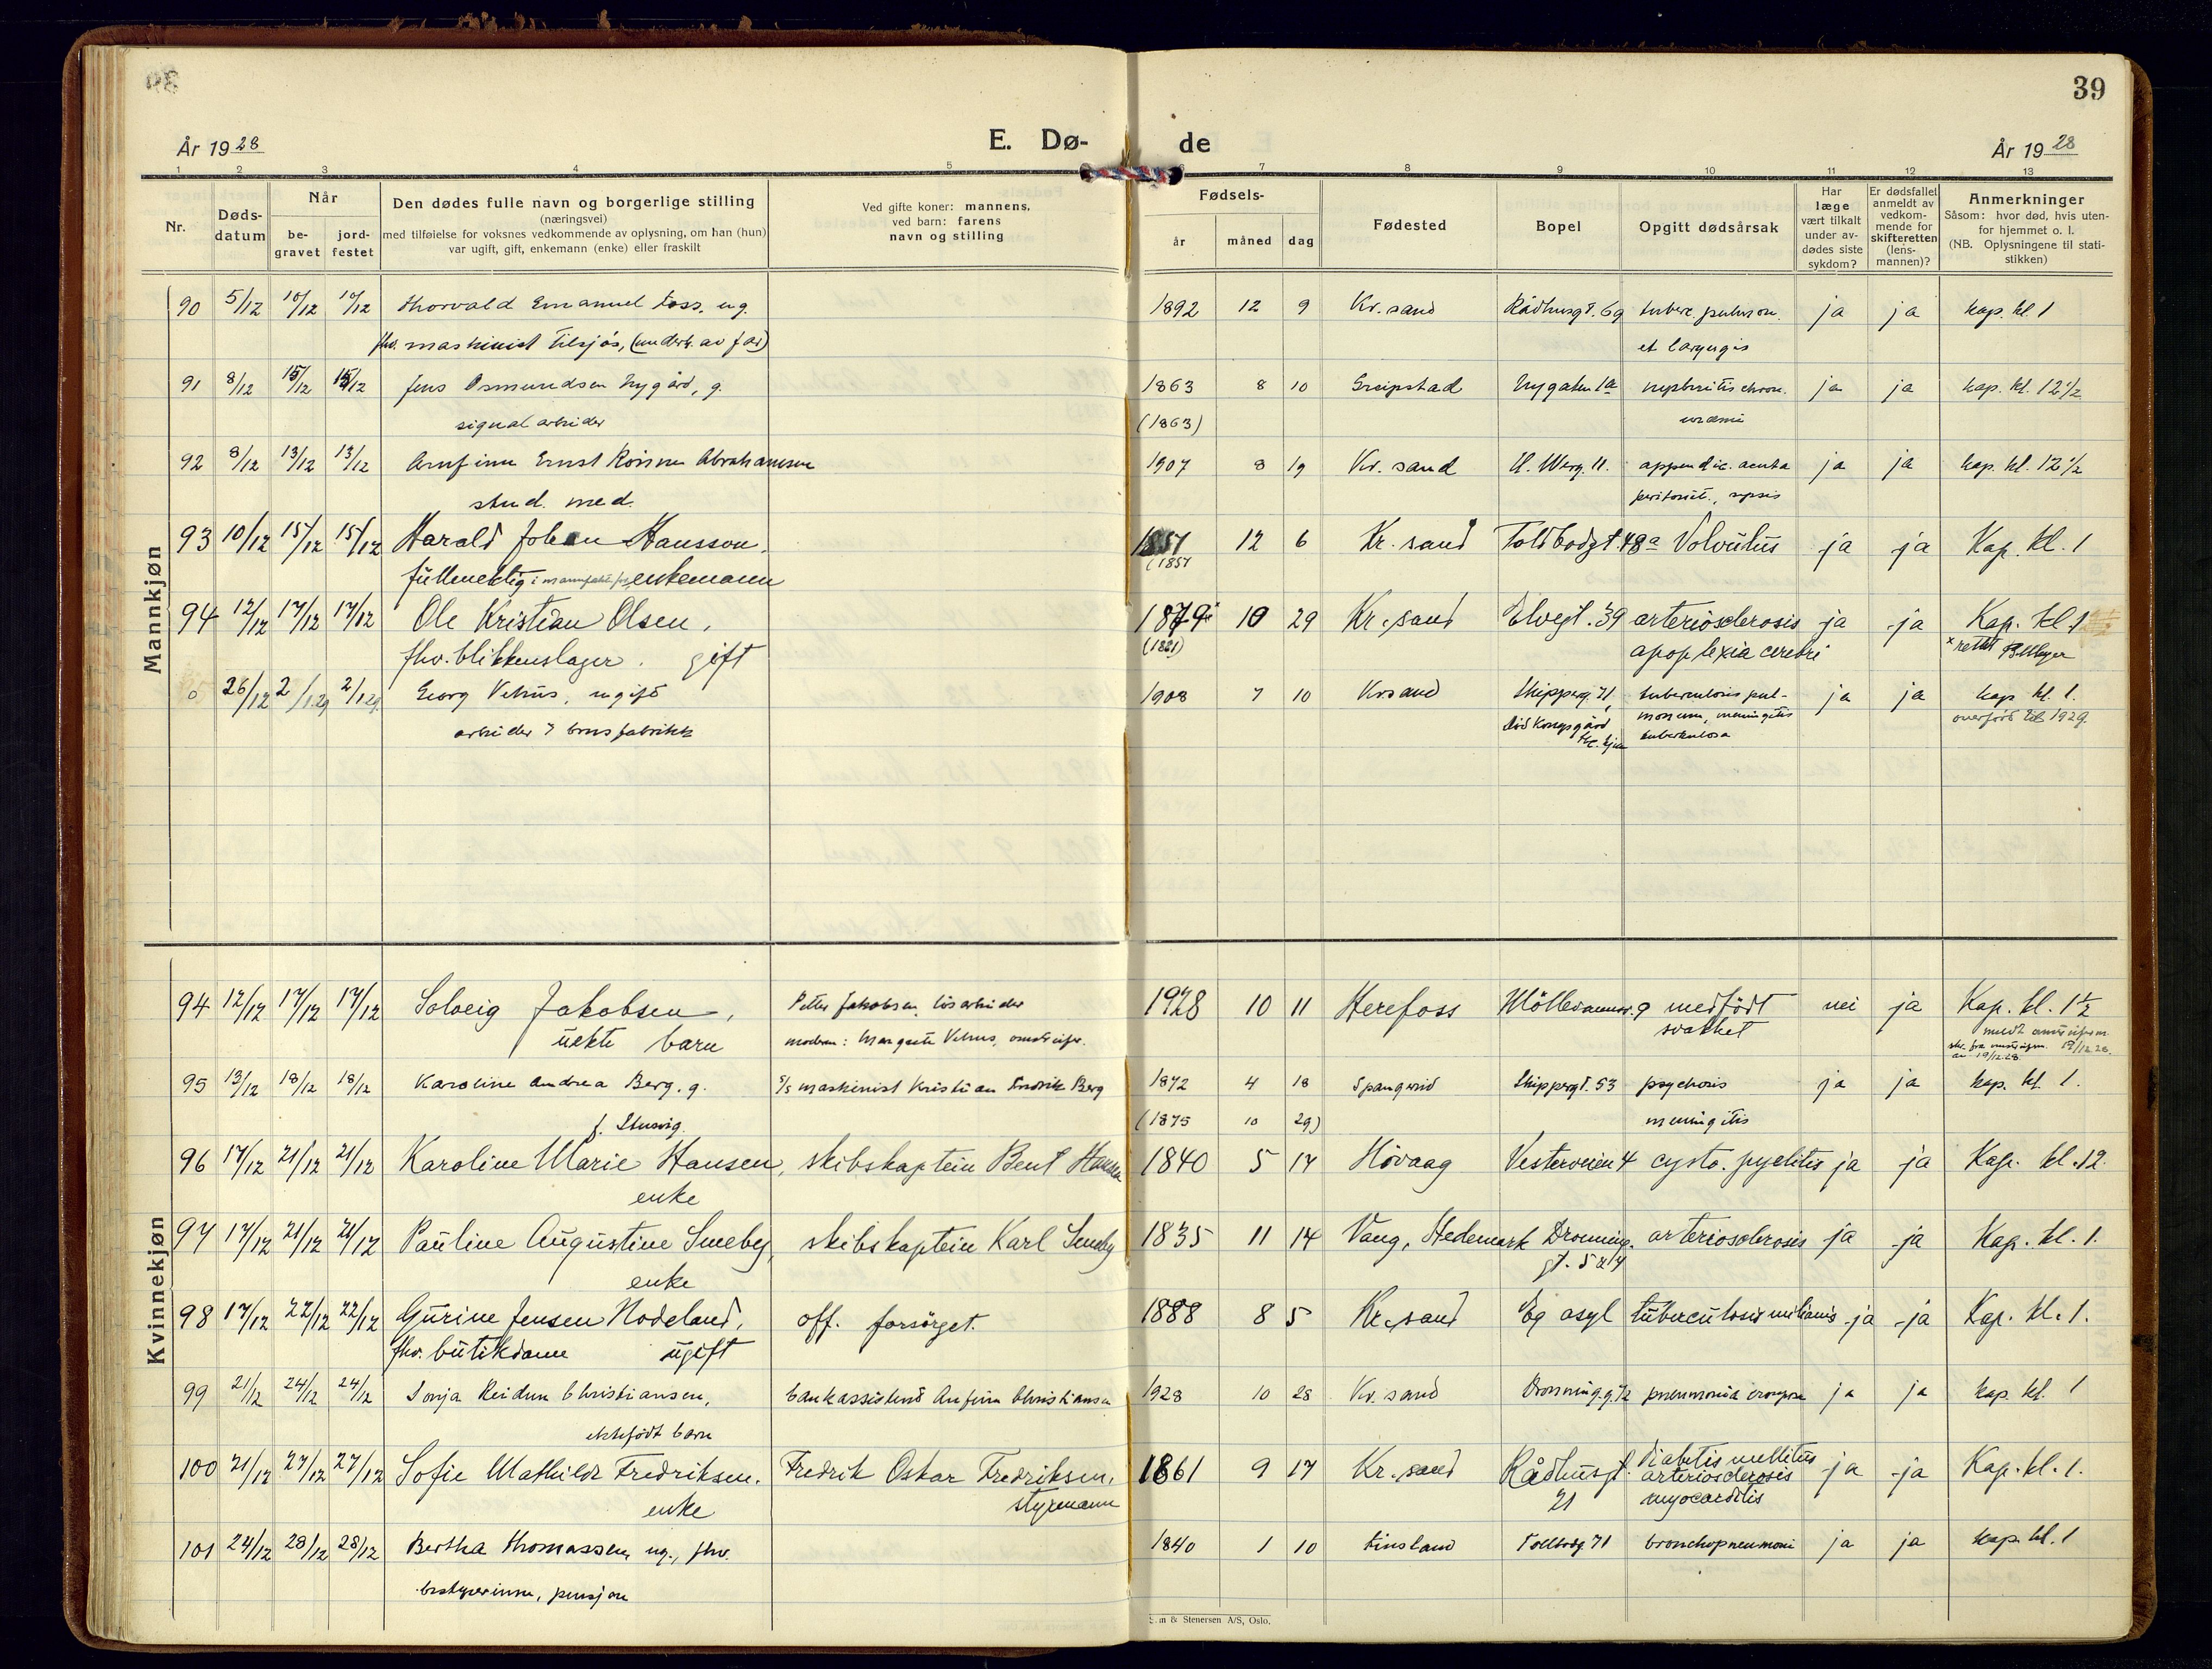 39
År 1928
E. Dø- de
År 1928
1 2 3 4 5 7 8 9 10 11 12 13
Nr.
Døds-
datum
Når
be-
gravet
jord-
festet
Den dødes fulle navn og borgerlige stilling
(næringsvei)
med tilføielse for voksnes vedkommende av oplysning, om han (hun)
var ugift, gift, enkemann (enke) eller fraskilt
Ved gifte koner: mannens,
ved barn: farens
navn og stilling
Fødsels-
år måned dag
Fødested
Bopel
Opgitt dødsårsak
Har
læge
vært tilkalt
under av-
dødes siste
sykdom?
Er dødsfallet
anmeldt av
vedkom-
mende for
skifteretten
(lens-
mannen)?
Anmerkninger
Såsom: hvor død, hvis uten-
for hjemmet o. l.
(NB. Oplysningene til stati-
stikken)
Mannkjøn
90 5/12 10/12 10/12 Thorvald Emanuel Foss, ug. 1892 12 9 Kr.sand Rådhusgt. 69 tuberc. pulmon. ja ja kap. kl 1
fhv. maskinist tilsjøs, (underh. av far) et laryngis
91 8/12 15/12 15/12 Jens Osmundsen Nygård, g. 1863 8 10 Greipstad Nygaten 1a nephritis chron. ja ja kap. kl. 12 1/2
signalarbeider (1863) uræmi
92 8/12 13/12 13/12 Arnfinn Ernst Abrahamsen 1907 8 19 Kr.sand H. Werg. 11. appendic. acuta ja ja kap. kl. 12 1/2
stud. med. peritonit., sepsis
93 10/12 15/12 15/12 Harald Johan Hansson, 1857 12 6 Kr.sand Toldbodgt. 48a Volvulus ja ja Kap. kl. 1
fullmektig i enkemann (1857
94 12/12 17/12 17/12 Ole Kristian Olsen, 1879x 10 29 Kr.sand Elvegt. 39 arteriosclerosis ja ja Kap. kl 1
fhv. blikkenslager. gift (1881) apoplexia cerebri x rettet
0 26/12 2/1.29 2/1.29. Georg Vehus, ugift 1908 7 10 Krsand Skipperg. 71, tuberkulosis pul- ja ja kap kl. 1.
arbeider i brusfabrikk død Kongsgård monum, meningitis overført til 1929.
tuberkulosa
Kvinnekjøn
94 12/12 17/12 17/12 Solveig Jakobsen, Petter Jakobsen, løsarbeider 1928 10 11 Herefoss Møllevannsv. 9 medfødt nei ja Kap. kl. 1 1/2
uekte barn moderen: Margrete Vehus, svakhet
95 13/12 18/12 18/12 Karoline Andrea Berg. g. s/s maskinist Kristian Fredrik Berg 1872 4 18 Spangereid Skippergt. 53 psychosis ja ja kap. kl. 1.
(1875 10 29) meningitis
96 17/12 21/12 21/12 Karoline Marie Hansen, skibskaptein Bent Hansen 1840 5 17 Høvaag Vesterveien 4 cysto. pyelitis ja ja Kap. kl. 12.
enke
97 17/12 21/12 21/12 Pauline Augustine Smeby, skibskaptein Karl Smeby 1835 11 14 Vang, Hedemark Dronning. arteriosclerosis ja ja Kap. kl. 1.
enke
98 17/12 22/12 22/12 Gurine Jensen Nodeland, off. forsørget. 1888 8 5 Kr.sand Eg asyl tuberculosis miliaris ja ja Kap. kl. 1.
fhv. butikdame ugift
99 21/12 24/12 24/12 Sonja Reidun Christiansen, bankassistent Arnfinn Christiansen 1928 10 28 Kr.sand pneumonia crouposa ja ja kap. kl. 1
ektefødt barn
100 21/12 27/12 27/12 Sofie Mathilde Fredriksen. Fredrik Oskar Fredriksen, 1861 9 17 Kr.sand Rådhusgt. diabetis mellitus ja ja Kap. kl. 1.
enke styrmann 21 arteriosclerosis
myocarditis
101 24/12 28/12 28/12 Bertha Thomassen, ug., fhv. 1840 1 10 Finsland Tollbodg. 71 bronchopneumoni ja ja kap. kl. 1
bestyrerinne, pensjon
& Stenersen A/S, Oslo.